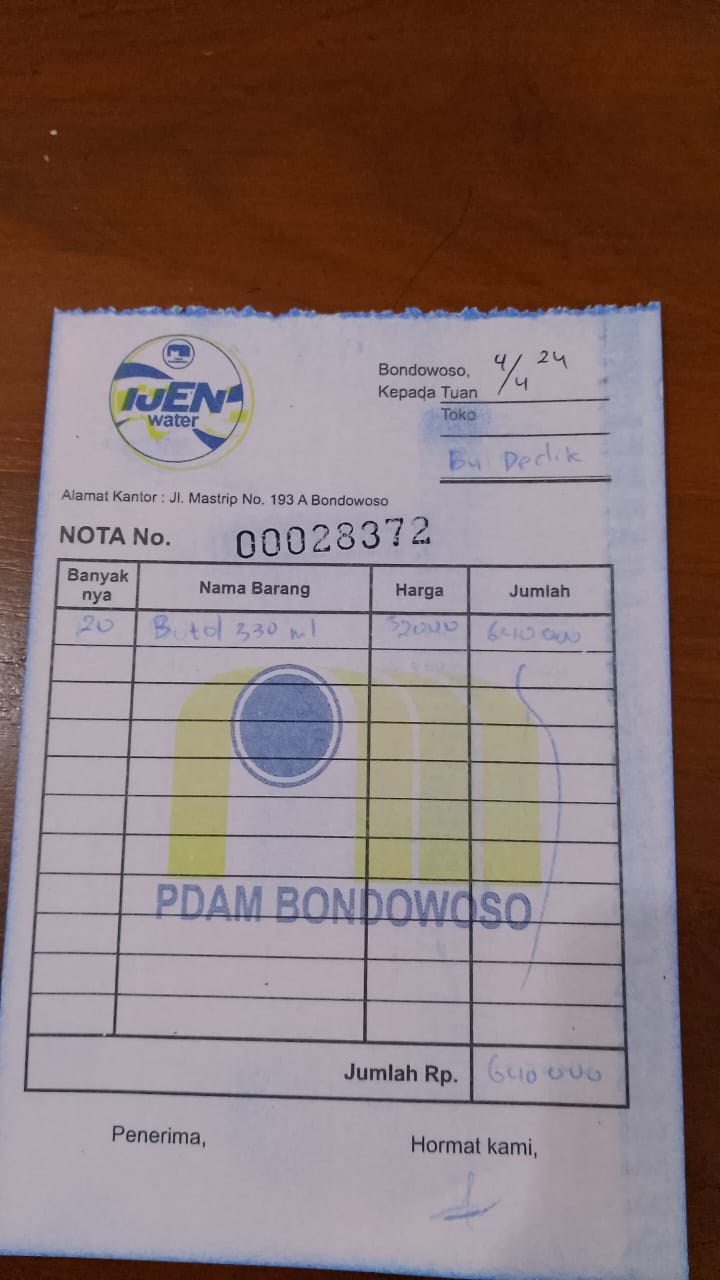 IJEN
water
Bondowoso, 4/4 24
Kepada Tuan
Toko
Bu Dedik
Alamat Kantor : Jl. Mastrip No. 193 A Bondowoso
NOTA No. 00028372
Banyak nya Nama Barang Harga Jumlah
20 Botol 330 ml 32000 640000
PDAM BONDOWOSO
Jumlah Rp. 640000
Penerima,
Hormat kami,